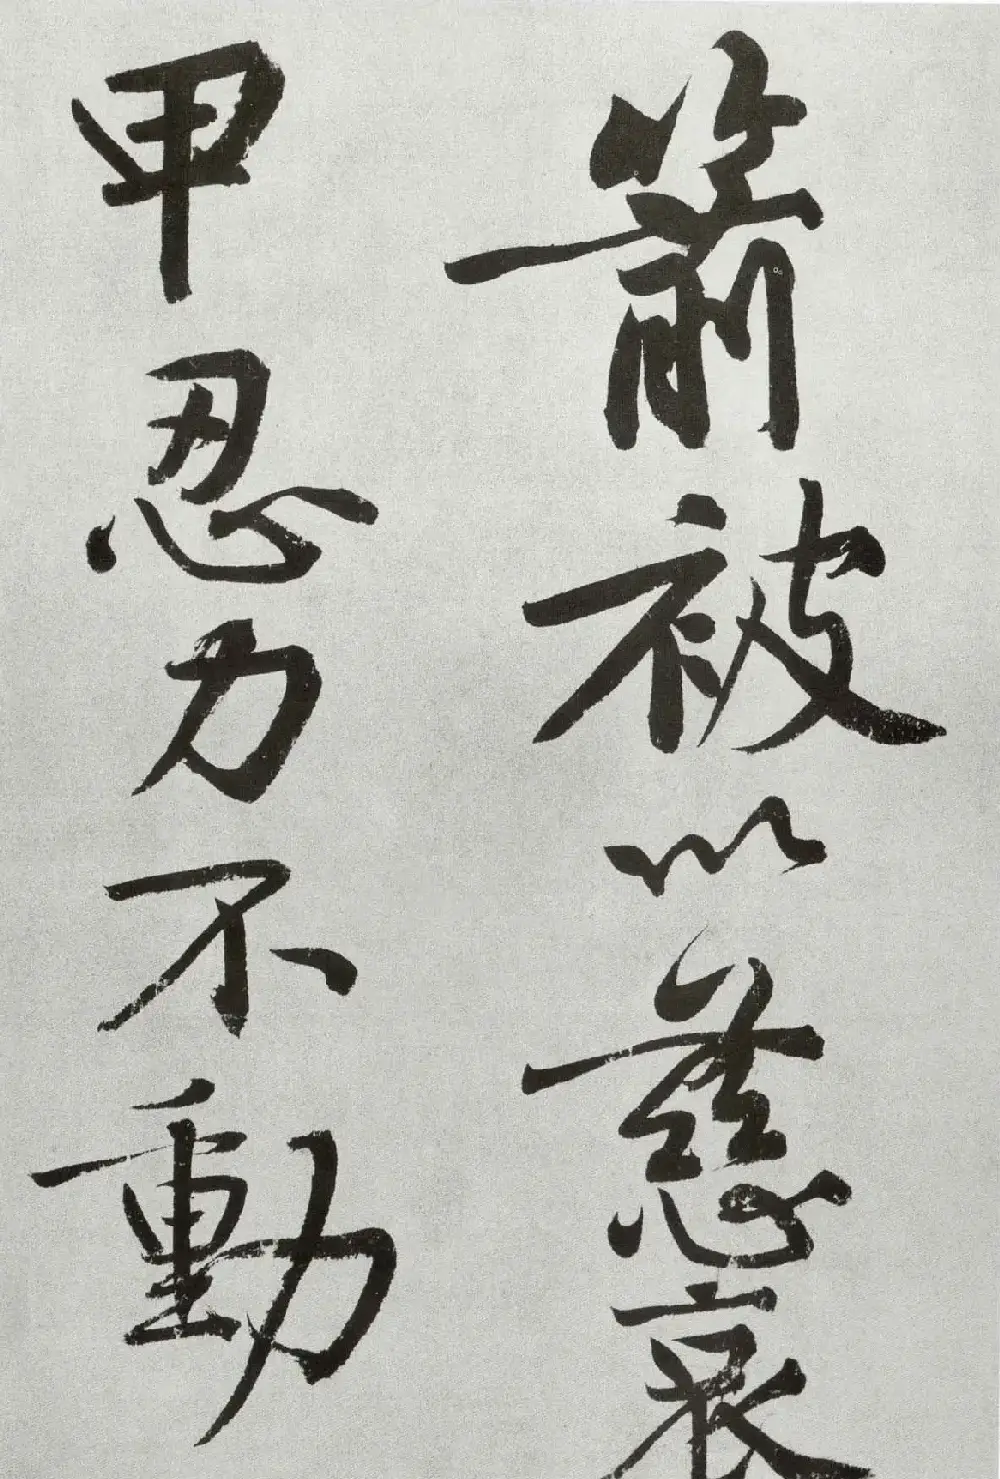 箭被以慈哀
甲忍力不動